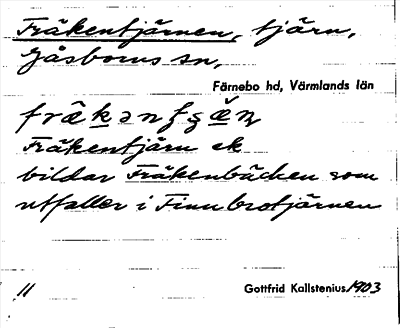 Fräkentjärnen, tjärn,
Gåsborns sn,
Färnebo hd, Värmlands län
Fräkentjärn ek
bildar Fräkenbäcken som
utfaller i Finnbrotjärnen
11
Gottfrid Kallstenius 1903